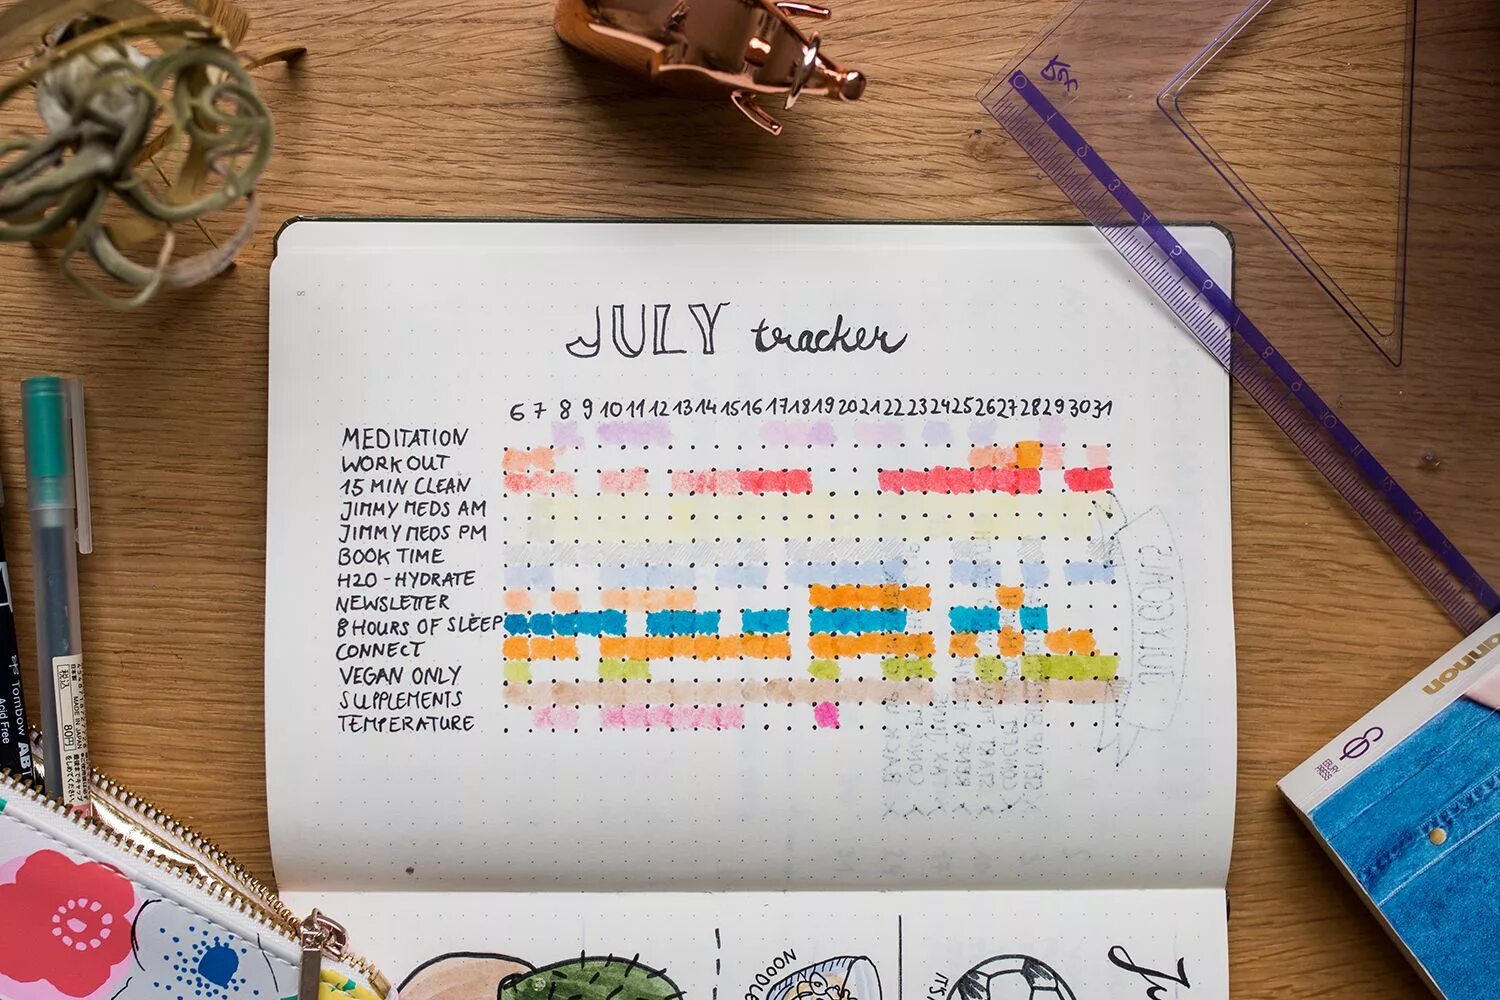 JULY tracker
6 7 8 9 10 11 12 13 14 15 16 17 18 19 20 21 22 23 24 25 26 27 28 29 30 31
MEDITATION
WORK OUT
15 MIN CLEAN
JIMMY MEDS AM
JIMMY MEDS PM
BOOK TIME
H2O - HYDRATE
NEWSLETTER
8 HOURS OF SLEEP
CONNECT
VEGAN ONLY
SUPPLEMENTS
TEMPERATURE
8
0 1 2 3 4 5 6 7 8 9 10 11
Tombow AB
Acid Free
MADE IN JAPAN
80円
EBURY
PRESS
NOODLE
IT'S
Ju